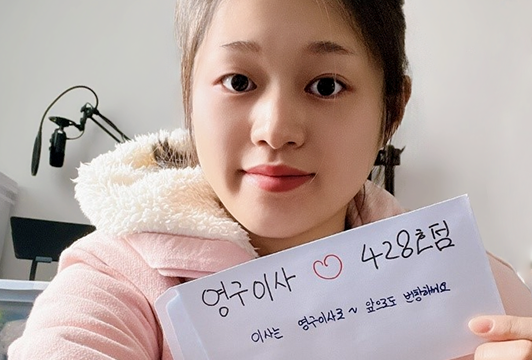 영구이사 ♡ 428호점
이사는 영구이사로~ 앞으로도 번창하세요